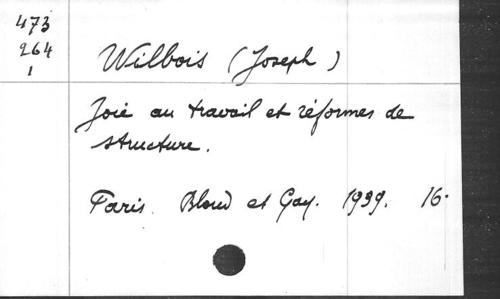 473
264
1
Wilbois (Joseph)
Joie au travail et réformes de
structure.
Paris. Bloud et Gay. 1939. 16.